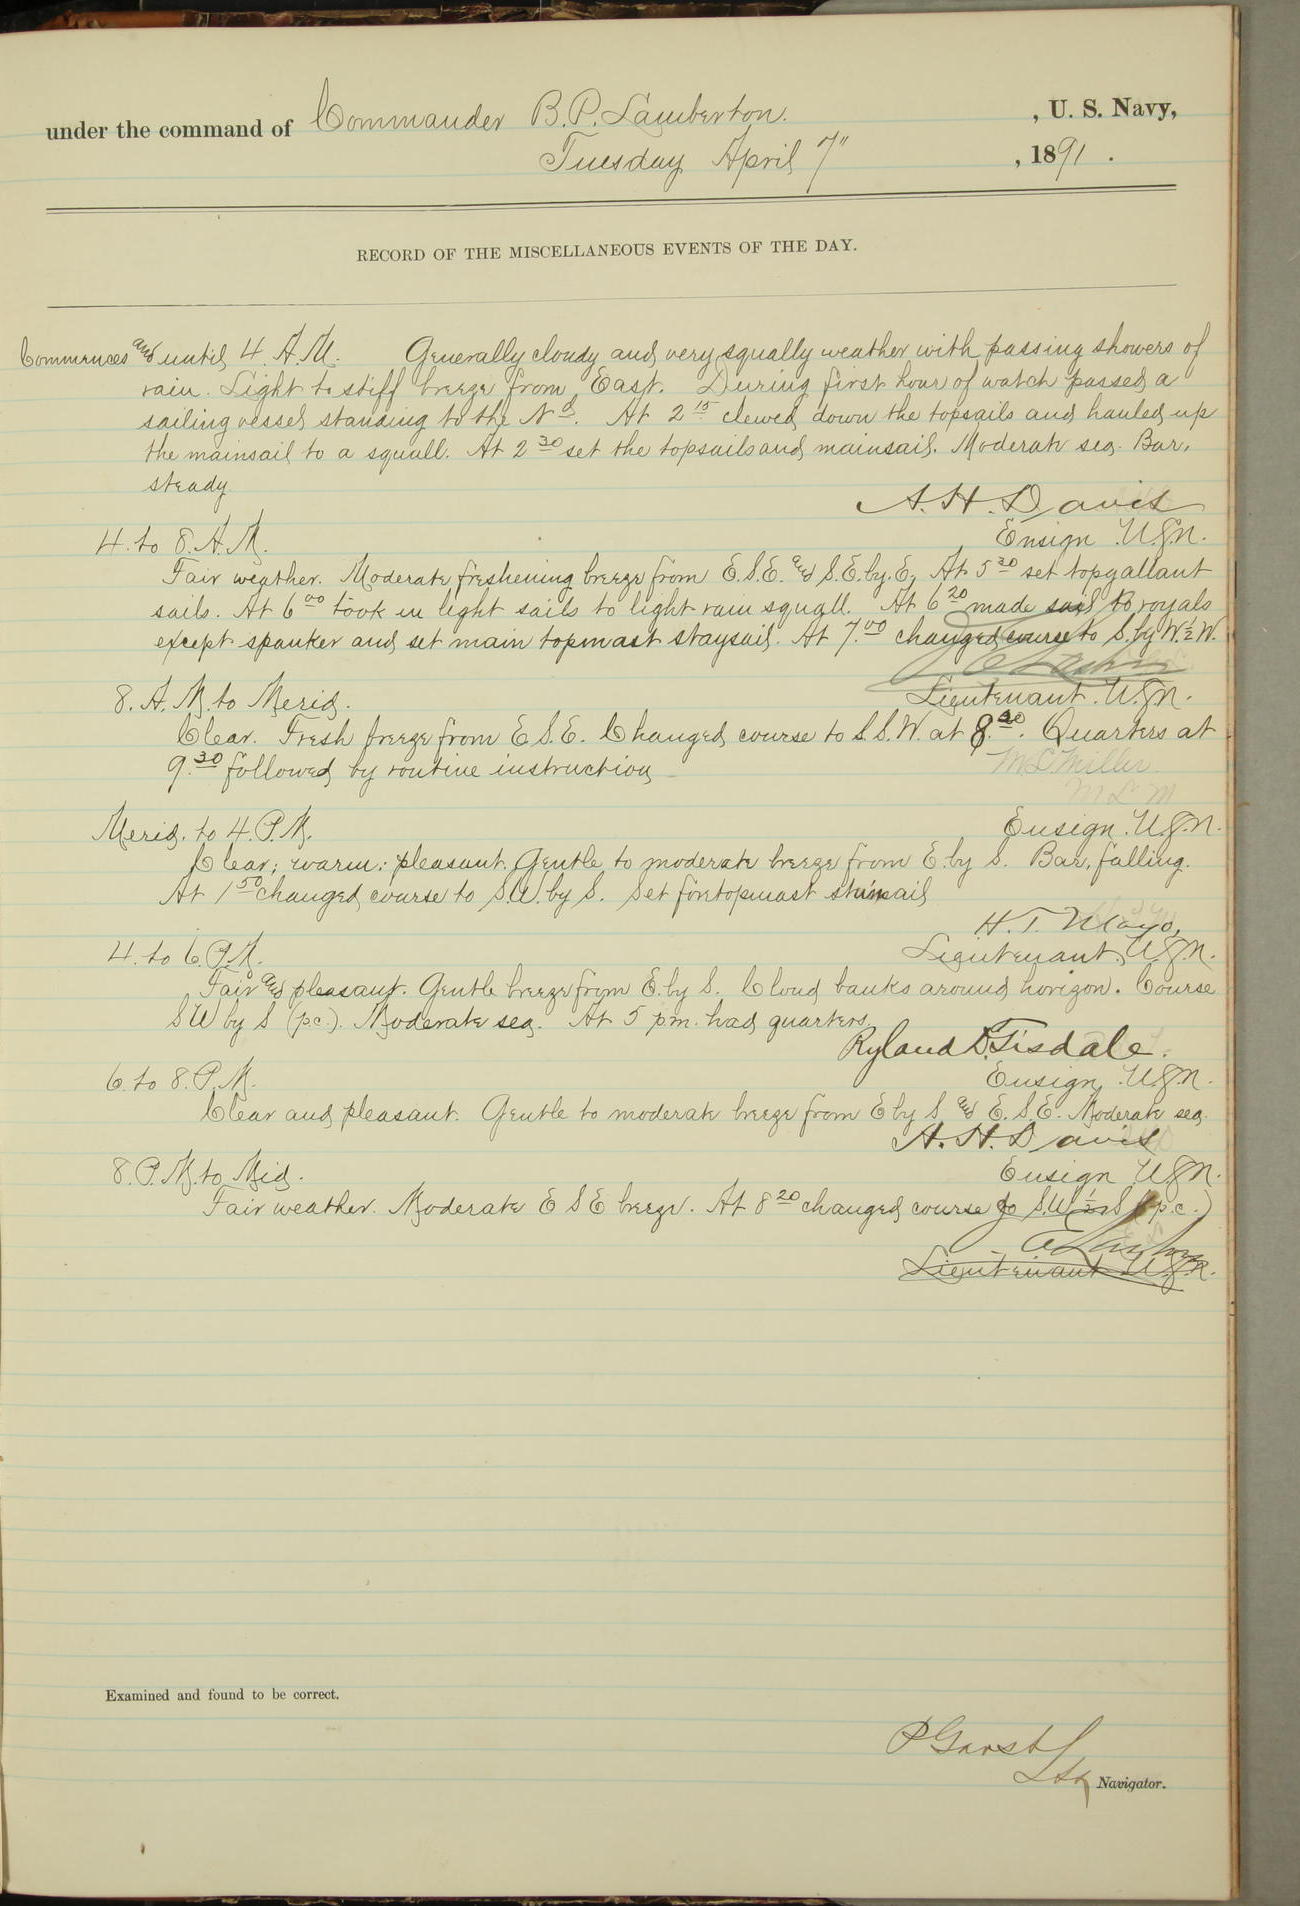 under the command of Commander B. P. Lamberton. , U. S. Navy,
Tuesday April 7" , 1891 .
RECORD OF THE MISCELLANEOUS EVENTS OF THE DAY.
Commences and until 4 A.M. Generally cloudy and very squally weather with passing showers of
rain. Light to stiff breeze from East. During first hour of watch passed a
sailing vessel standing to the Nd. At 2 15 clewed down the topsails and hauled up
the mainsail to a squall. At 2 30 set the topsails and mainsail. Moderate sea. Bar.
steady
A. H. Davis
Ensign U.S.N.
4. to 8. A.M.
Fair weather. Moderate freshening breeze from E.S.E. and S.E. by. E. At 5 30 set topgallant
sails. At 6 00 took in light sails to light rain squall. At 6 20 made sail to royals
except spanker and set main topmast staysail. At 7. 00 changed course to S. by W. ½ W.
Lieutenant. U.S.N.
8. A. M. to Merid.
Clear. Fresh breeze from E.S.E. Changed course to S.S.W. at 8. 30. Quarters at
9. 30 followed by routine instruction
M L Miller
M L M
Ensign. U.S.N.
Merid. to 4. P.M.
Clear; warm; pleasant. Gentle to moderate breeze from E. by S. Bar. falling.
At 1 50 changed course to S.W. by S. Set foretopmast stunsail
H. T. Mayo,
Lieutenant, U.S.N.
4. to 6. P.M.
Fair and pleasant. Gentle breeze from E. by S. Cloud banks around horizon. Course
SW by S (p.c.). Moderate sea. At 5 p.m. had quarters.
Ryland D. Tisdale.
Ensign, U.S.N.
6. to 8. P.M.
Clear and pleasant. Gentle to moderate breeze from E by S and E.S.E. Moderate sea.
A. H. Davis
Ensign U.S.N.
8. P.M. to Mid.
Fair weather. Moderate E S E breeze. At 8 20 changed course to S.W ½ S (p.c.)
Lieutenant U.S.N.
Examined and found to be correct.
P Garst
Navigator.